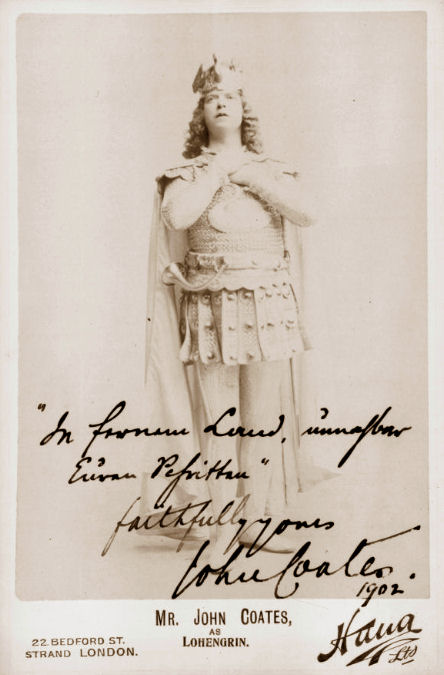 "In fernem Land, unnahbar
Euren Schritten"
faithfully yours
John Coates.
1902.
MR. JOHN COATES,
AS
LOHENGRIN.
22. BEDFORD ST.
STRAND LONDON.
Hana
Ltd